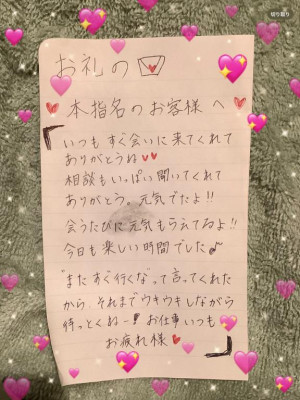 切り取り
お礼の💌
本指名のお客様へ♥
「いつもすぐ会いに来てくれて
ありがとうね♥♥
相談もいっぱい聞いてくれて
ありがとう。元気でたよ!!
会うたびに元気もらえてるよ!!
今日も楽しい時間でした♪
"またすぐ行くな"って言ってくれた
から それまでウキウキしながら
待っとくねー! お仕事いつも
お疲れ様♥」